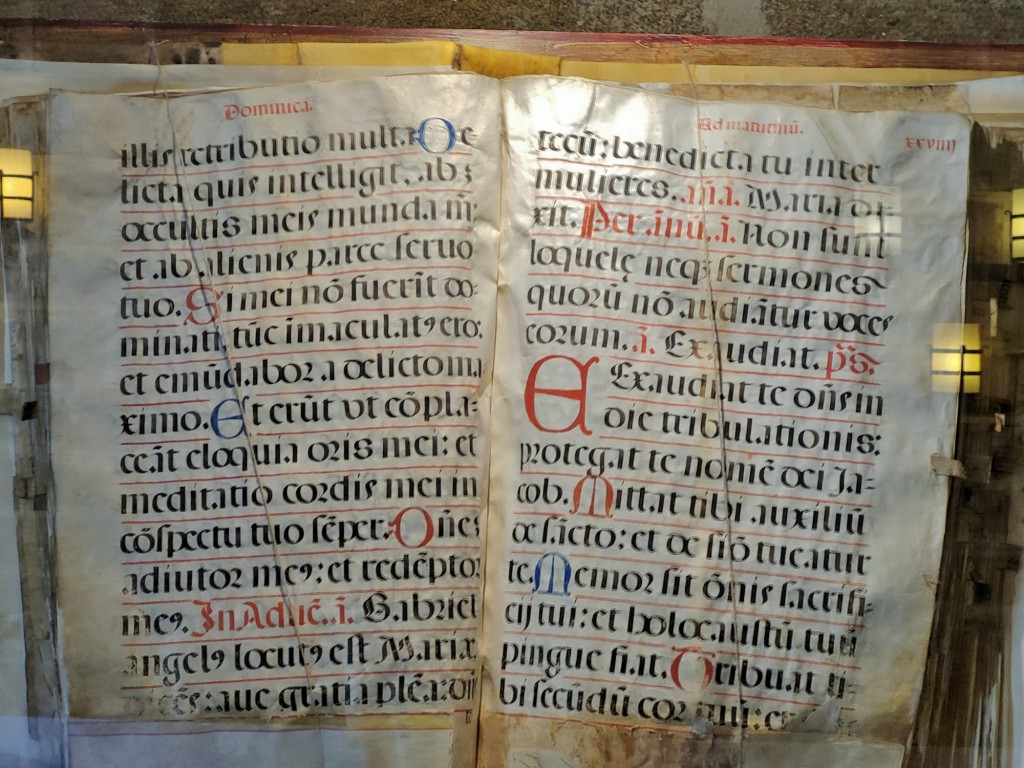 Dominica.
illis retributio multa: De
licta quis intelligit, ab
occultis meis munda m̄:
et ab alienis parce servo
tuo. Si mei nō fuerīt do
minati, tūc īmaculatꝰ ero:
et emūdabor a delicto ma
ximo. Et erūt ut cōpla=
ceāt eloquia oris mei: et
meditatio cordis mei in
cōspectu tuo sēper. Dñe
adiutor meꝰ: et redēptor
meꝰ. In Aduē. ī. Gabriel
angelꝰ locutꝰ est Marie
aue gratia plēa: dñ
Ad matutinū.
xxviiij
tecū: benedicta tu inter
mulieres. añ. ī. Maria di=
xit. Per ānū. ī. Non sunt
loquelę neqȝ sermones
quorū nō audiātur voces
eorum. ī. Exaudiat. p̄s.
Exaudiat te dñs in
die tribulationis:
protegat te nomē dei Ja=
cob. Mittat tibi auxiliū
de sācto: et de siō tueatur
te. Memor sit ōnis sacrifi=
cij tui: et holocaustū tuū
pingue fiat. Tribuat ti=
bi secūdū cor tuū: et